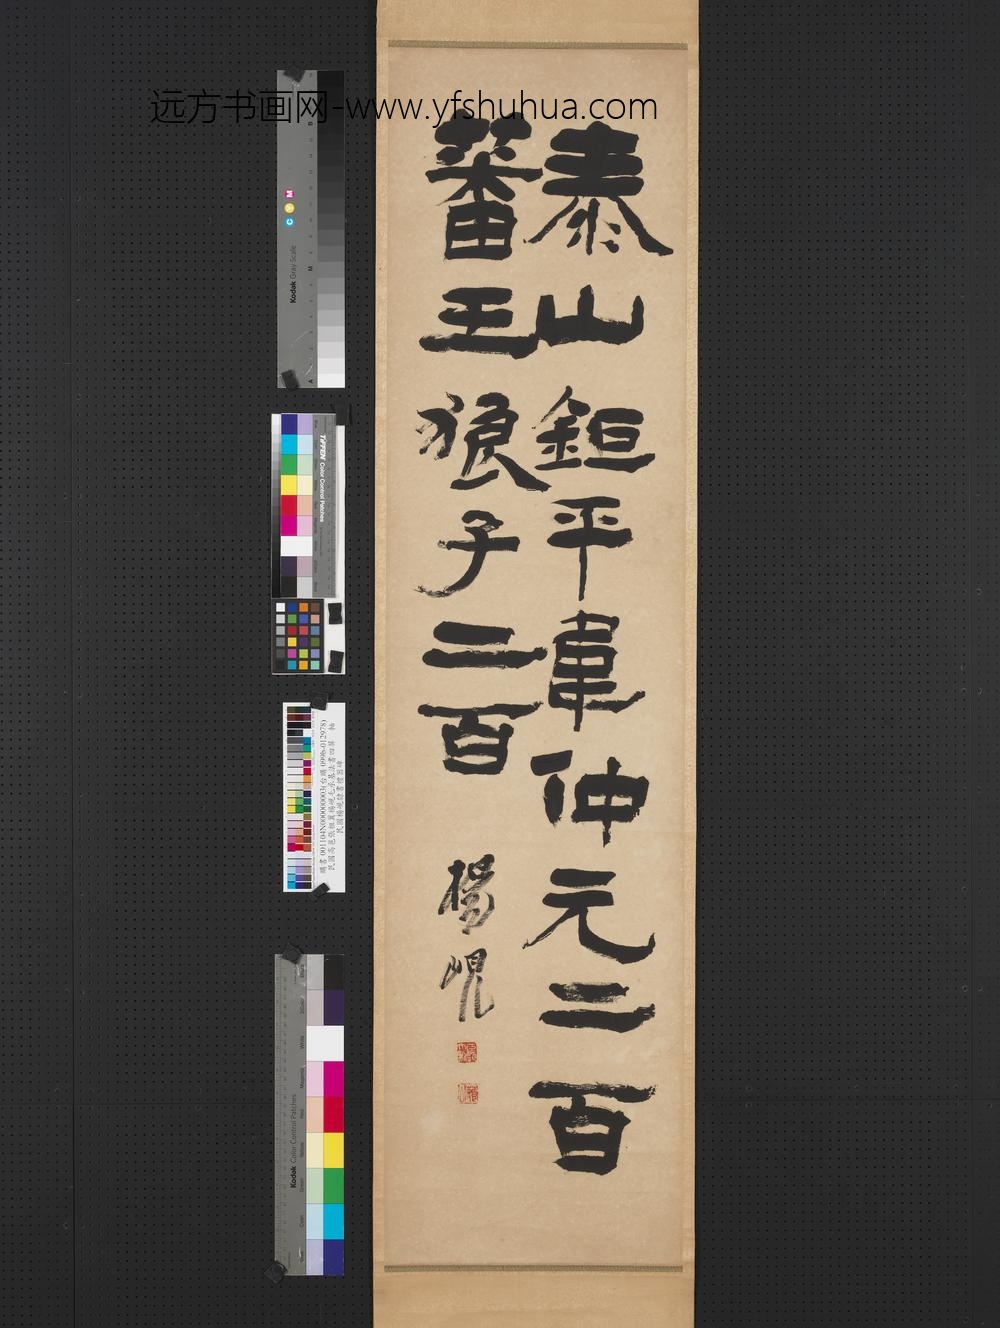 远方书画网-www.yfshuhua.com
泰山鉅平韋仲元二百
蕃王狼子二百
楊峴
Kodak Gray Scale
C Y M
TIFFEN Color Control Patches
Kodak Color Control Patches